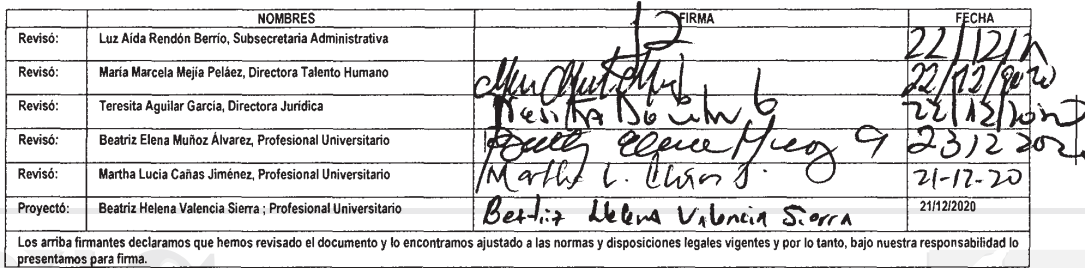 NOMBRES FIRMA FECHA
Revisó: Luz Aída Rendón Berrío, Subsecretaria Administrativa 22/12/2
Revisó: María Marcela Mejía Peláez, Directora Talento Humano 22/12/2020
Revisó: Teresita Aguilar García, Directora Jurídica Teresita 22/12/2020
Revisó: Beatriz Elena Muñoz Álvarez, Profesional Universitario 23/12 2020
Revisó: Martha Lucia Cañas Jiménez, Profesional Universitario Martha L. Cañas J. 21-12-20
Proyectó: Beatriz Helena Valencia Sierra ; Profesional Universitario Beatriz Helena Valencia Sierra 21/12/2020
Los arriba firmantes declaramos que hemos revisado el documento y lo encontramos ajustado a las normas y disposiciones legales vigentes y por lo tanto, bajo nuestra responsabilidad lo
presentamos para firma.